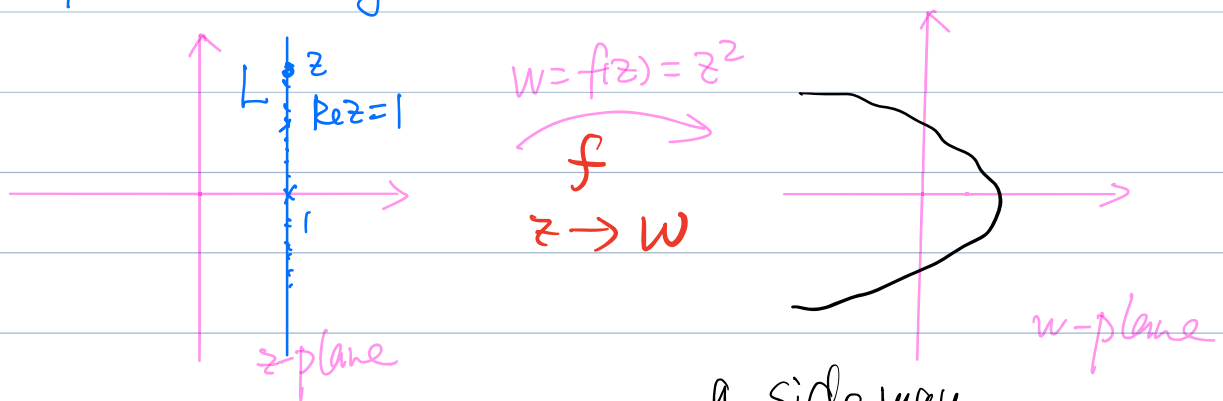 L
z
Re z = 1
1
z-plane
w = f(z) = z²
f
z → w
w-plane
a side way